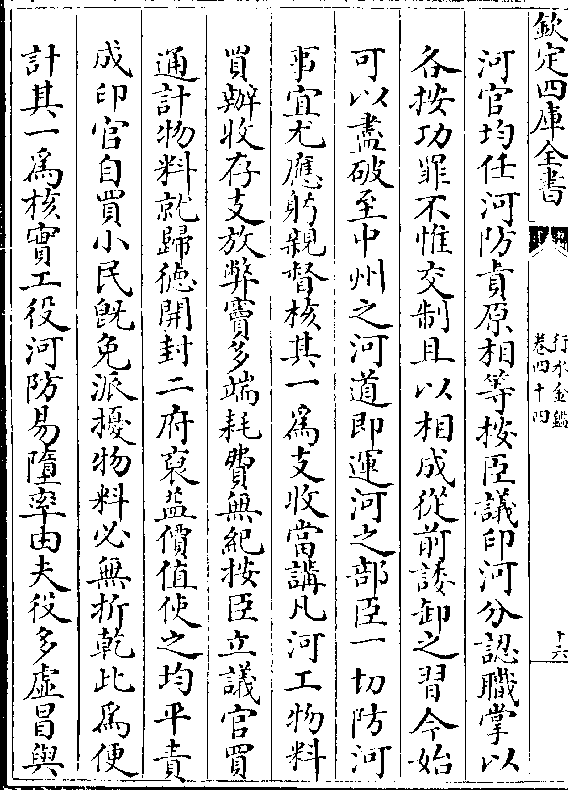 欽定四庫全書
行水金鑑
卷四十四
十六
河官均任河防責原相等按臣議印河分認職掌以
各按功罪不惟交制且以相成從前諉卸之習今始
可以盡破至中州之河道即運河之部臣一切防河
事宜尤應躬親督核其一為支收當講凡河工物料
買辦收存支放弊竇多端耗費無紀按臣立議官買
通計物料就歸德開封二府裒益價值使之均平責
成印官自買小民既免派擾物料必無折乾此為便
計其一為核實工役河防易墮率由夫役多虛冒與